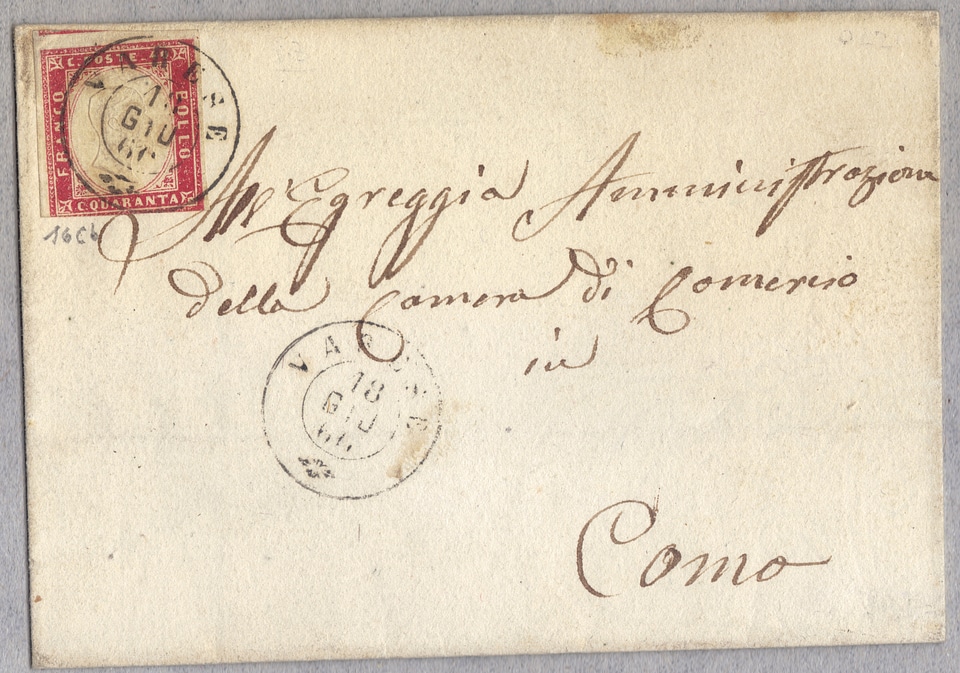 C. POSTE 40
FRANCO
BOLLO
C.QUARANTA
VARESE
18
GIU
66
16Cb
All'Egreggia Amministrazione
della Camera di Comercio
in
VARESE
18
GIU
66
Como